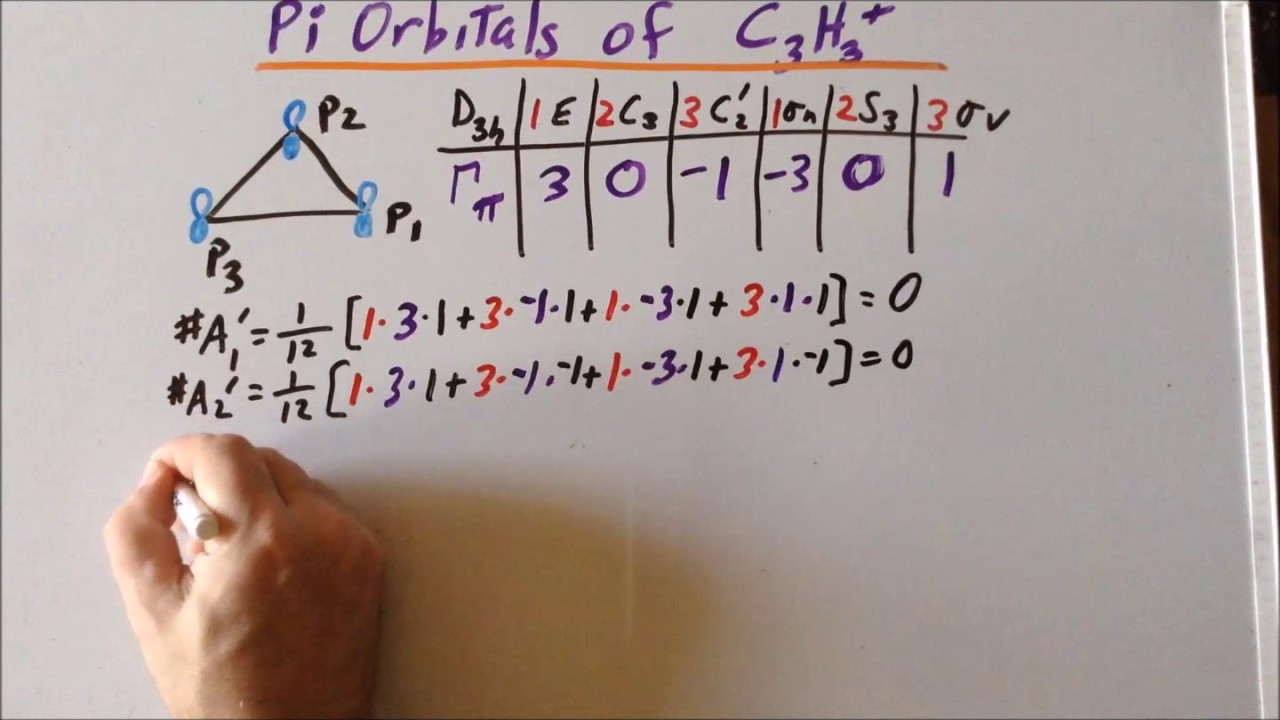 Pi Orbitals of C₃H₃⁺
P2
P₁
P₃
D₃ₕ 1E 2C₃ 3C₂′ 1σₕ 2S₃ 3σv
Γπ 3 0 -1 -3 0 1
#A₁′ = 1/12 [1·3·1+3·-1·1+1·-3·1+3·1·1] = 0
#A₂′ = 1/12 [1·3·1+3·-1·-1+1·-3·1+3·1·-1] = 0